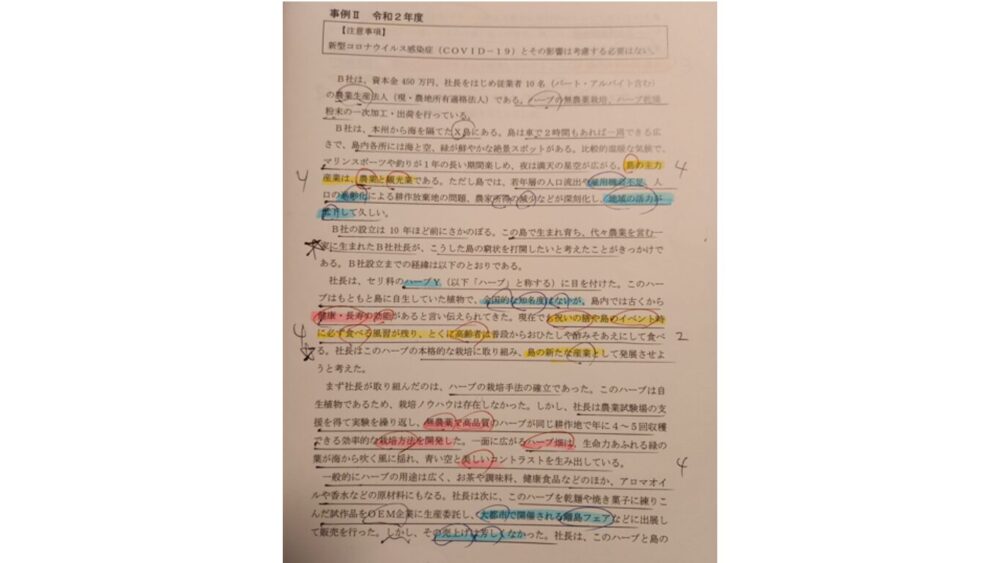 事例Ⅱ 令和２年度
【注意事項】
新型コロナウイルス感染症（ＣＯＶＩＤ－１９）とその影響は考慮する必要はない。
Ｂ社は、資本金 450 万円、社長をはじめ従業者 10 名（パート・アルバイト含む）
の農業生産法人（現・農地所有適格法人）である。ハーブの無農薬栽培、ハーブ乾燥
粉末の一次加工・出荷を行っている。
Ｂ社は、本州から海を隔てたＸ島にある。島は車で２時間もあれば一周できる広
さで、島内各所には海と空、緑が鮮やかな絶景スポットがある。比較的温暖な気候で、
マリンスポーツや釣りが１年の長い期間楽しめ、夜は満天の星空が広がる。島の主力
4 産業は、農業と観光業である。ただし島では、若年層の人口流出や雇用機会不足、人 4
口の高齢化による耕作放棄地の問題、農家所得の減少などが深刻化し、地域の活力が
低下して久しい。
Ｂ社の設立は 10 年ほど前にさかのぼる。この島で生まれ育ち、代々農業を営む一
家に生まれたＢ社社長が、こうした島の窮状を打開したいと考えたことがきっかけで
ある。Ｂ社設立までの経緯は以下のとおりである。
社長は、セリ科のハーブＹ（以下「ハーブ」と称する）に目を付けた。このハー
ブはもともと島に自生していた植物で、全国的な知名度はないが、島内では古くから
健康・長寿の効能があると言い伝えられてきた。現在でも祝いの膳や島のイベント時
4 に必ず食べる風習が残り、とくに高齢者は普段からおひたしや酢みそあえにして食べ 2
る。社長はこのハーブの本格的な栽培に取り組み、島の新たな産業として発展させよ
うと考えた。
まず社長が取り組んだのは、ハーブの栽培手法の確立であった。このハーブは自
生植物であるため、栽培ノウハウは存在しなかった。しかし、社長は農業試験場の支
援を得て実験を繰り返し、無農薬で高品質のハーブが同じ耕作地で年に４～５回収穫
できる効率的な栽培方法を開発した。一面に広がるハーブ畑は、生命力あふれる緑の
葉が海から吹く風に揺れ、青い空と美しいコントラストを生み出している。 4
一般的にハーブの用途は広く、お茶や調味料、健康食品などのほか、アロマオイ
ルや香水などの原材料にもなる。社長は次に、このハーブを乾麺や焼き菓子に練りこ
んだ試作品をＯＥＭ企業に生産委託し、大都市で開催される離島フェアなどに出展し
て販売を行った。しかし、その売上げは芳しくなかった。社長は、このハーブと島の